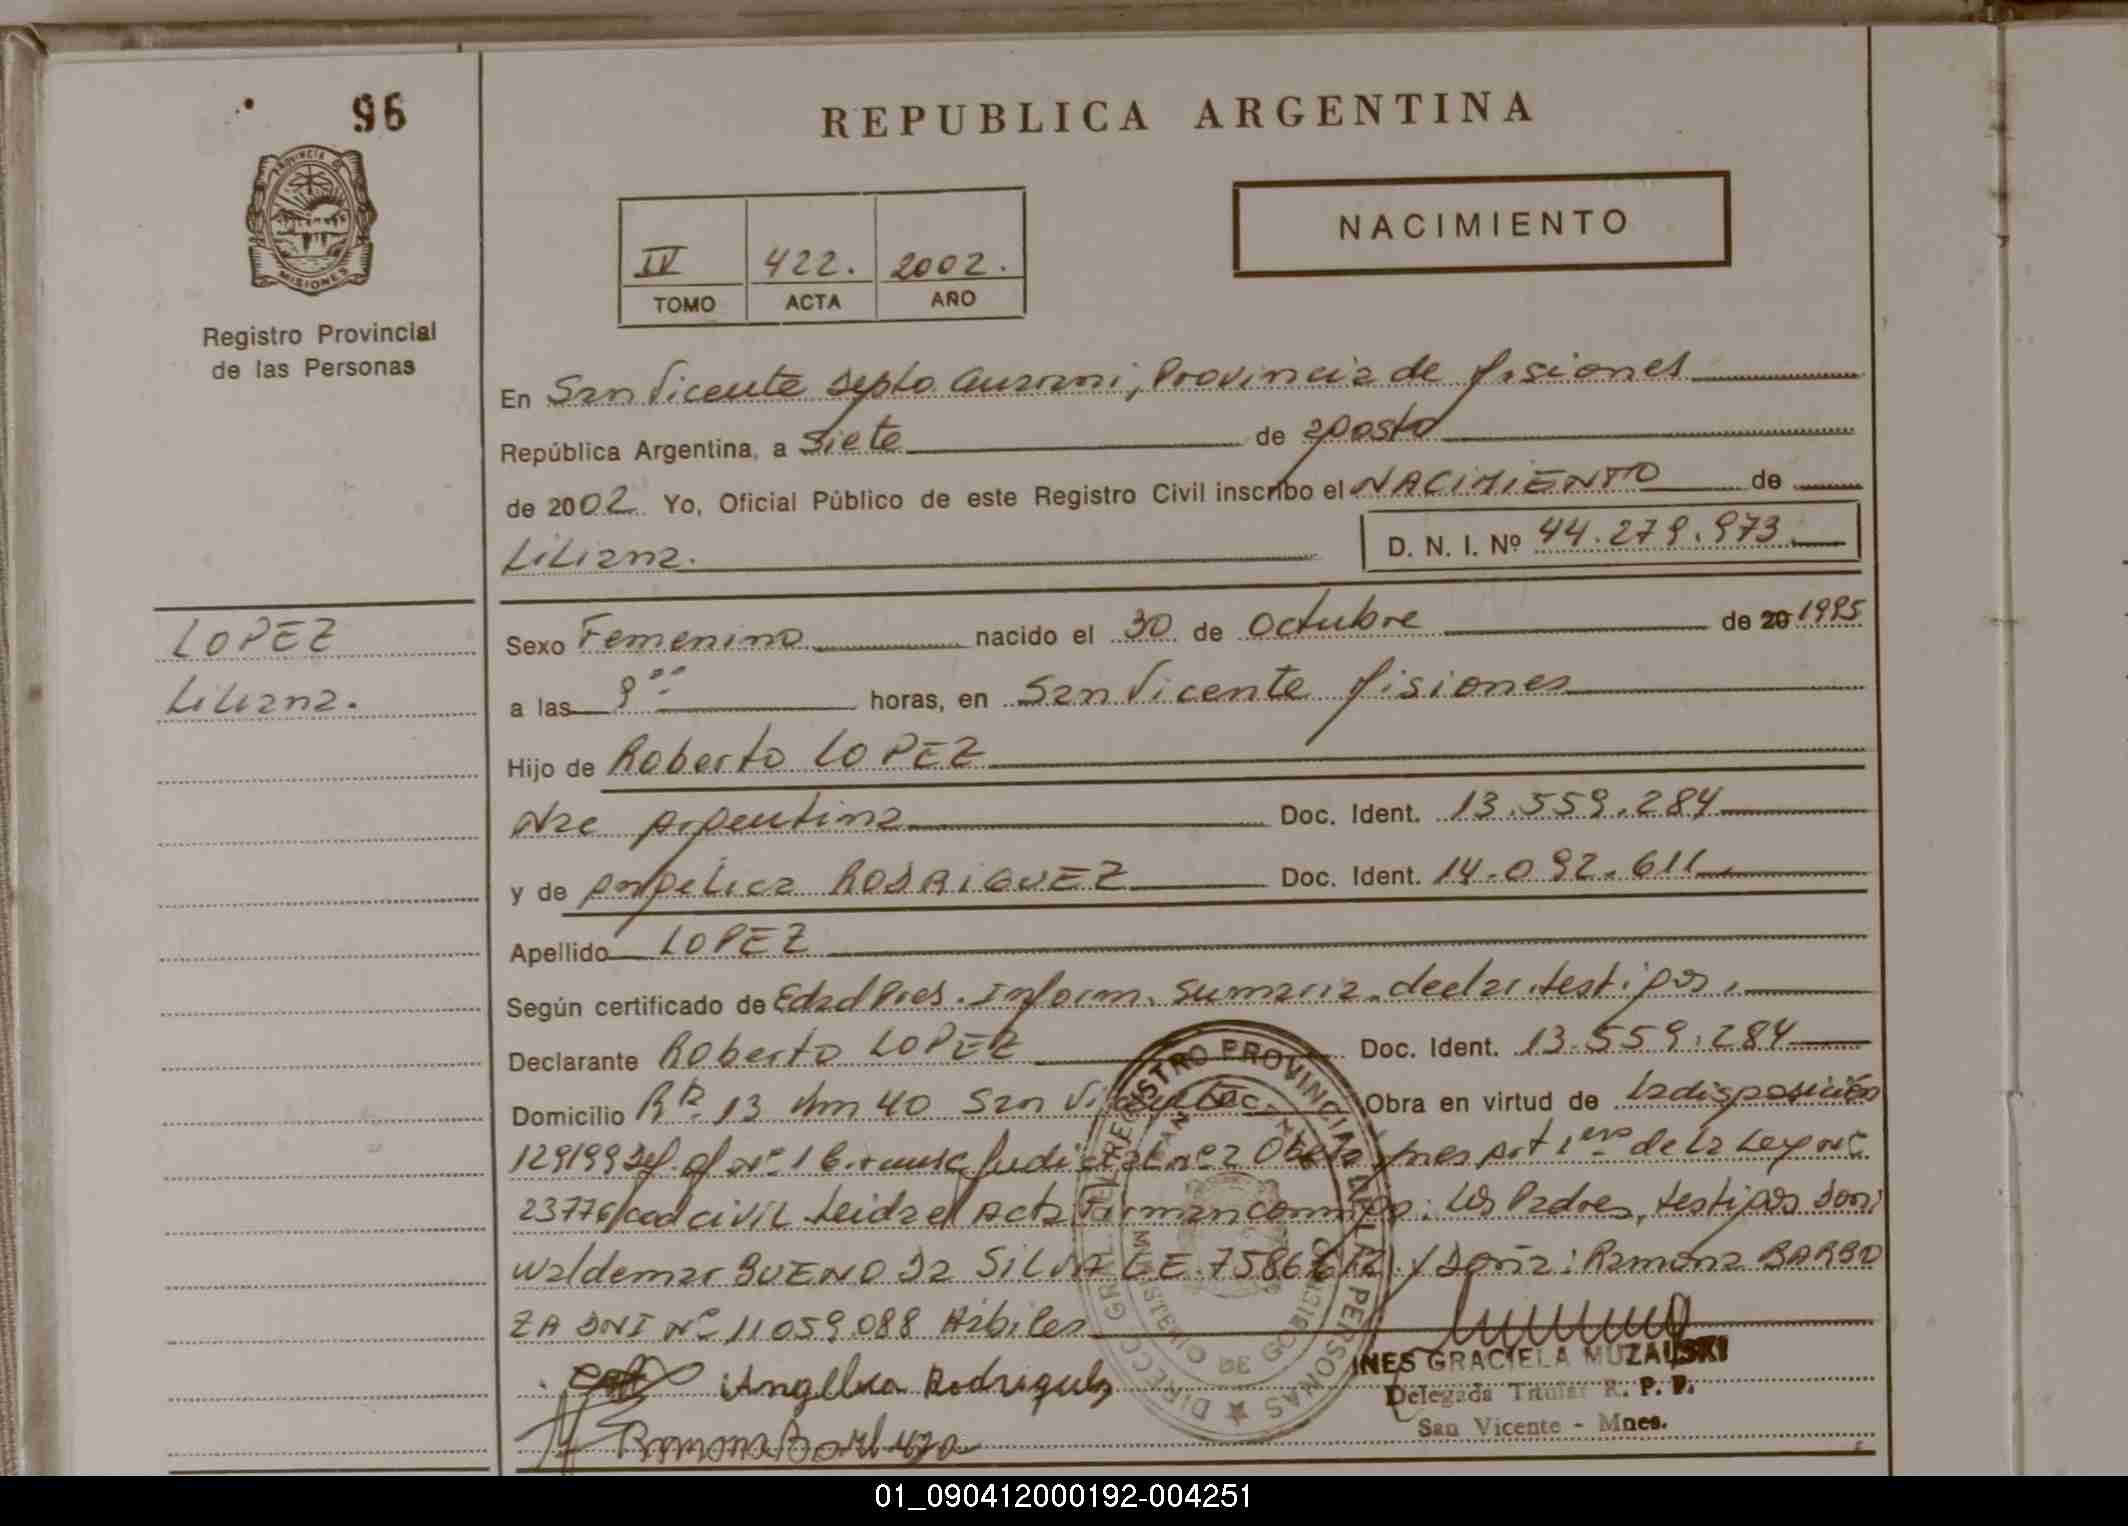 96
PROVINCIA DE
MISIONES
Registro Provincial
de las Personas
REPUBLICA ARGENTINA
NACIMIENTO
IV 422. 2002.
TOMO ACTA AÑO
En San Vicente Depto Guarani, Provincia de Misiones
República Argentina, a Siete de agosto
de 2002 Yo, Oficial Público de este Registro Civil inscribo el NACIMIENTO de
Liliana. D. N. I. Nº 44.279.973
LOPEZ
Liliana.
Sexo Femenino nacido el 30 de Octubre de 20 1995
a las 9 00 horas, en San Vicente Misiones
Hijo de Roberto LOPEZ
Nac Argentina Doc. Ident. 13.559.284
y de Angelica RODRIGUEZ Doc. Ident. 14.092.611
Apellido LOPEZ
Según certificado de Edad Pres. Inform. Sumaria. declar. testigos.
Declarante Roberto LOPEZ Doc. Ident. 13.559.284
Domicilio Rta. 13 Km 40 San Vicente Obra en virtud de la disposición
129/99 Def. of Nº 1 Judicial Nº 2 Oberá Mnes Art 1ero de la Ley Nº
23776/cod civil Leida el Acta Firman conmigo: Los Padres, testigos Don:
Waldemar BUENO Da SILVA LE 7586 y Doña: Ramona BARBO
ZA DNI Nº 11059.088 Hábiles
Angelica Rodriguez
INES GRACIELA MUZALSKI
Delegada Titular R. P. P.
Ramona Barboza
San Vicente - Mnes.
DIRECC. GRAL. DEL REGISTRO PROVINCIAL DE LAS PERSONAS
MINISTERIO DE GOBIERNO
01_090412000192-004251